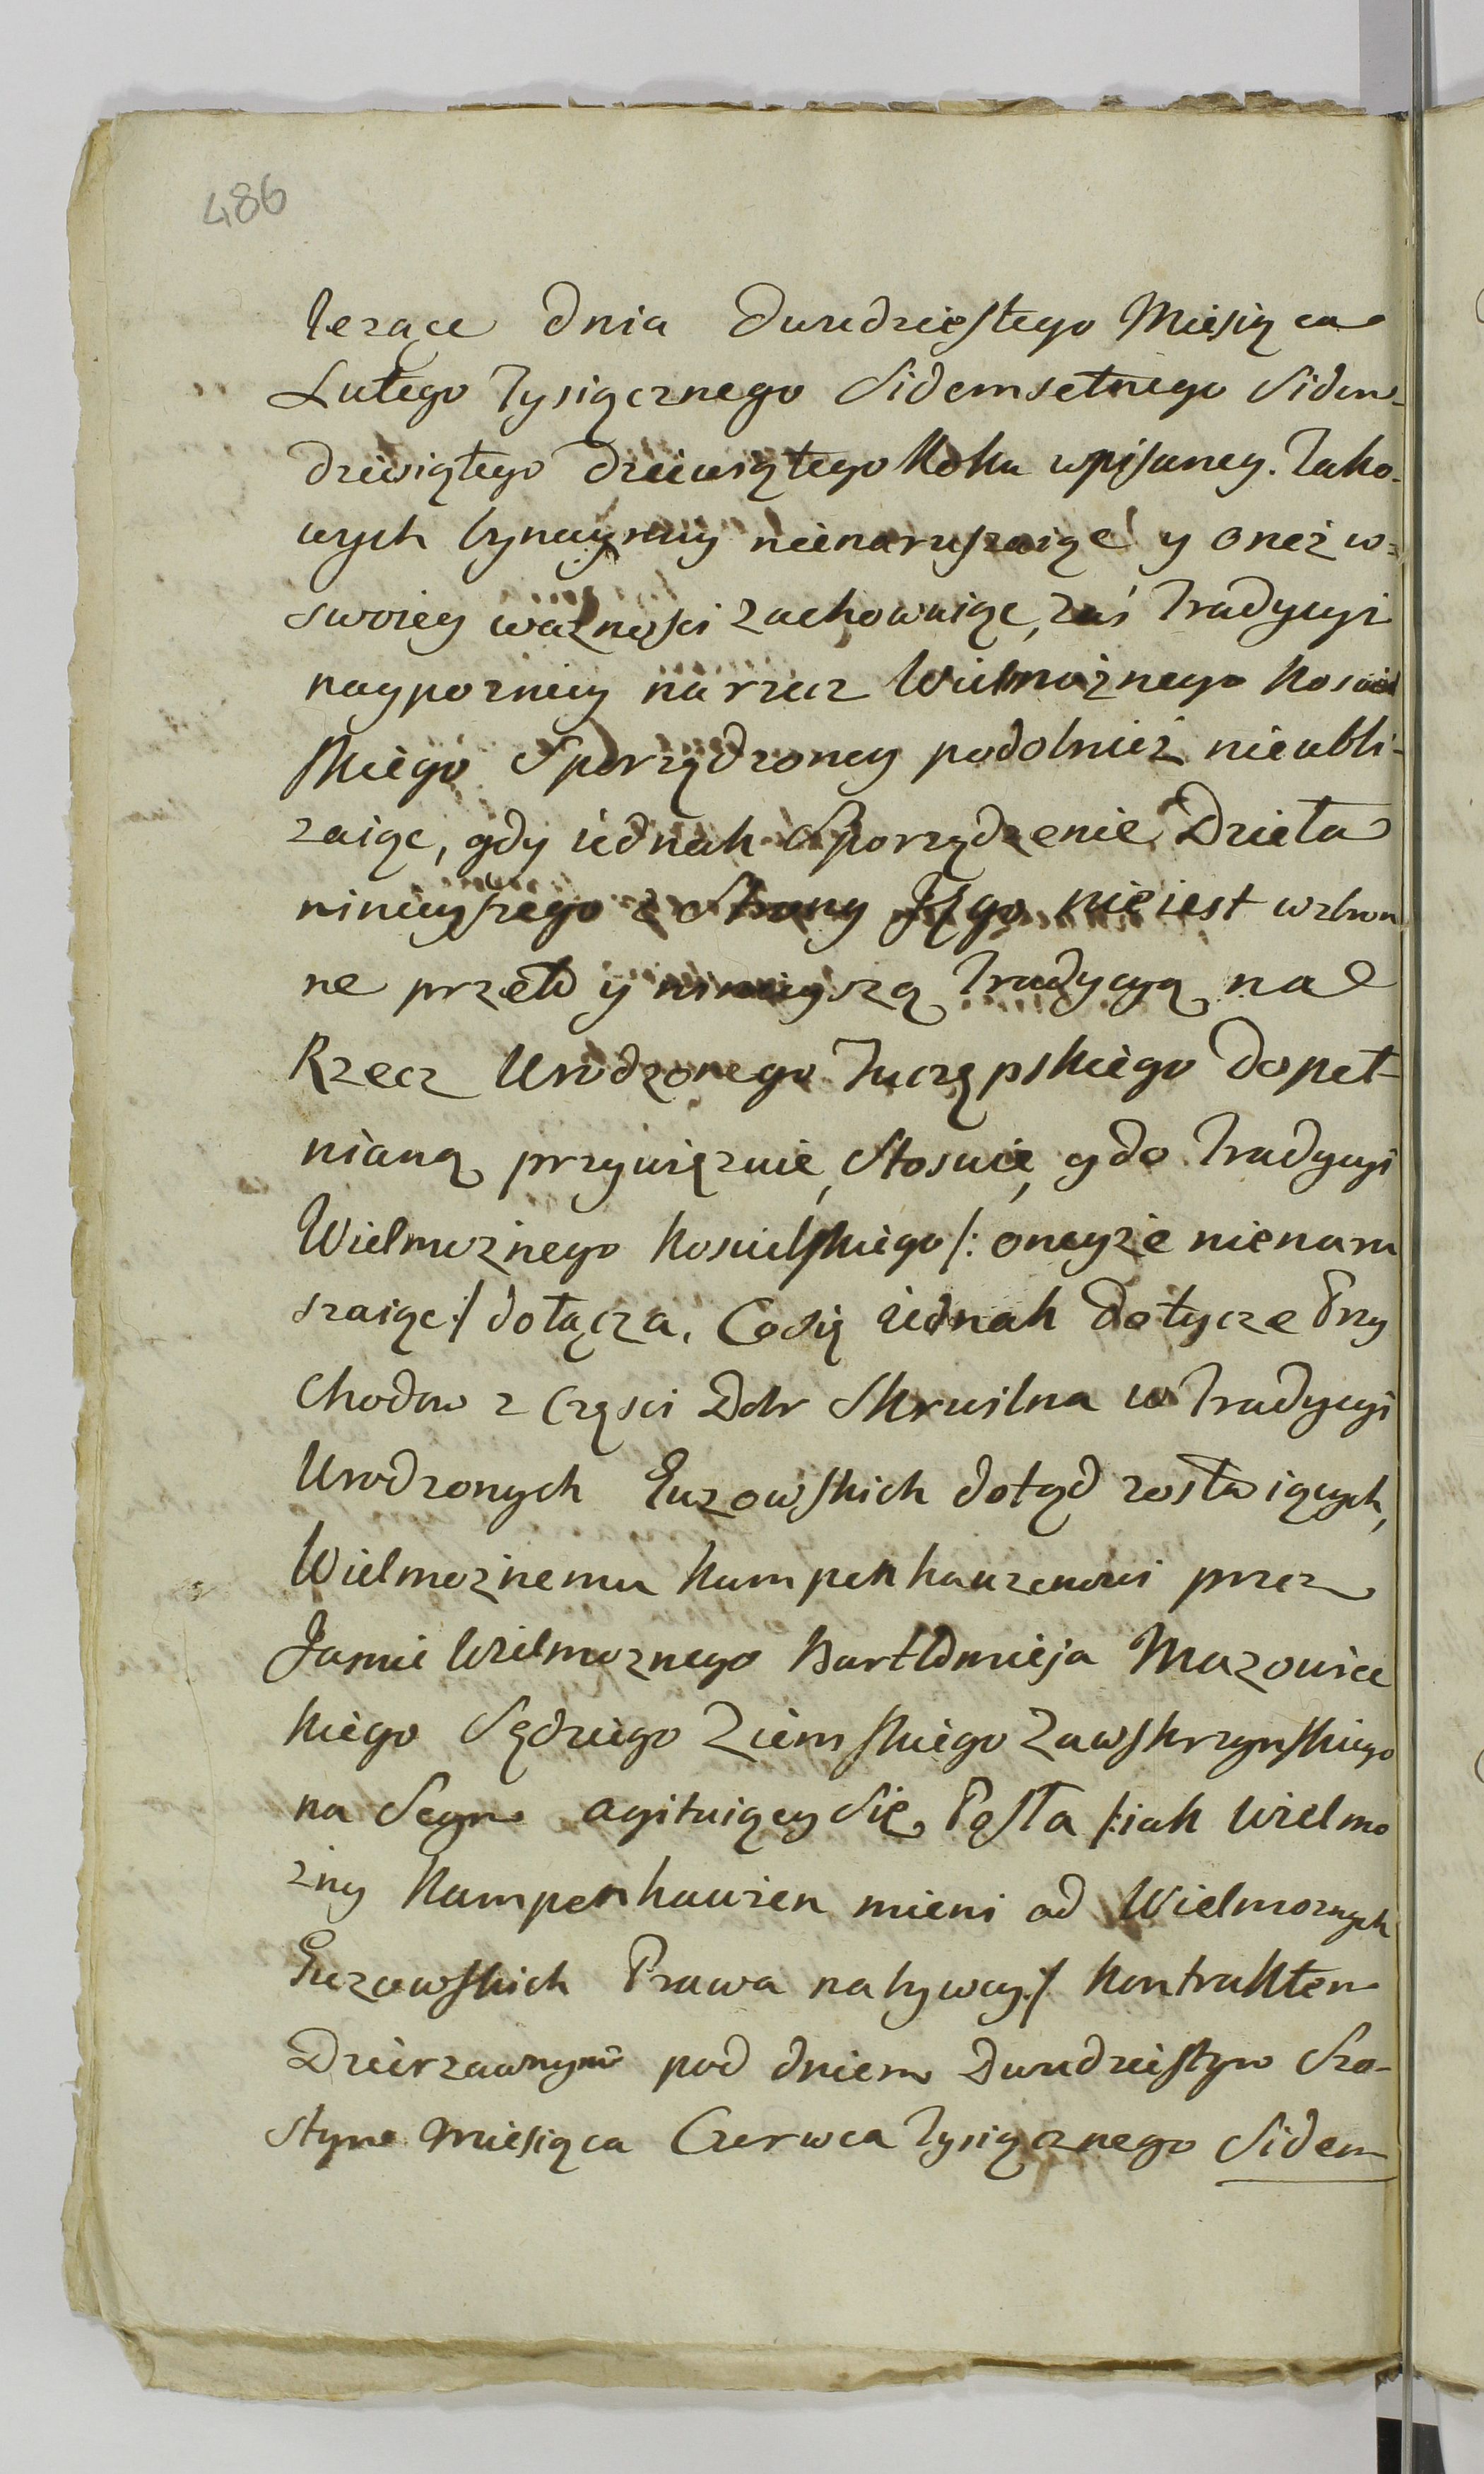 486
lezące dnia dwudziestego Miesiąca
Lutego Tysiącznego Sidemsetnego Sidem-
dziwiątego dziewiątego Roku wpisaney. Tako-
wych bynaymniy nienaruszaiąc y oneż w=
swoiey ważności zachowuiąc, zaś Tradycyi
naypozniey na rzecz Wielmożnego Kosciel
skiego Sporządzoney podobnież nieubli-
zaiąc, gdy iednak Sporządzenie Dzieła
ninieyszego z Strony Jego nie iest wzbron
ne przeto y ninieyszą Tradycyą na
Rzecz Urodzonego Tuczępskiego dopeł-
nianą przywięznie, Stosuie, y do Tradycyi
Wielmożnego Koscielskiego /: oneyże nienaru
szaiąc :/ dołącza. Co się iednak dotycze Przy
chodow z Części Dobr Skrwilna w Tradycyi
Urodzonych Guzowskich dotąd zostaiących,
Wielmożnemu Kampenhauzenowi przez
Jasnie Wielmożnego Bartłomieja Mazowiec
kiego Sędziego Ziemskiego Zawskrzynskiego
na Seym agituiący się Posła /: iak Wielmo
żny Kampenhauzen mieni od Wielmożnych
Guzowskich Prawa nabywcy :/ Kontraktem
Dzierzawnym pod dniem Dwudziestym Szo-
stym Miesiąca Czerwca Tysiącznego Sidem